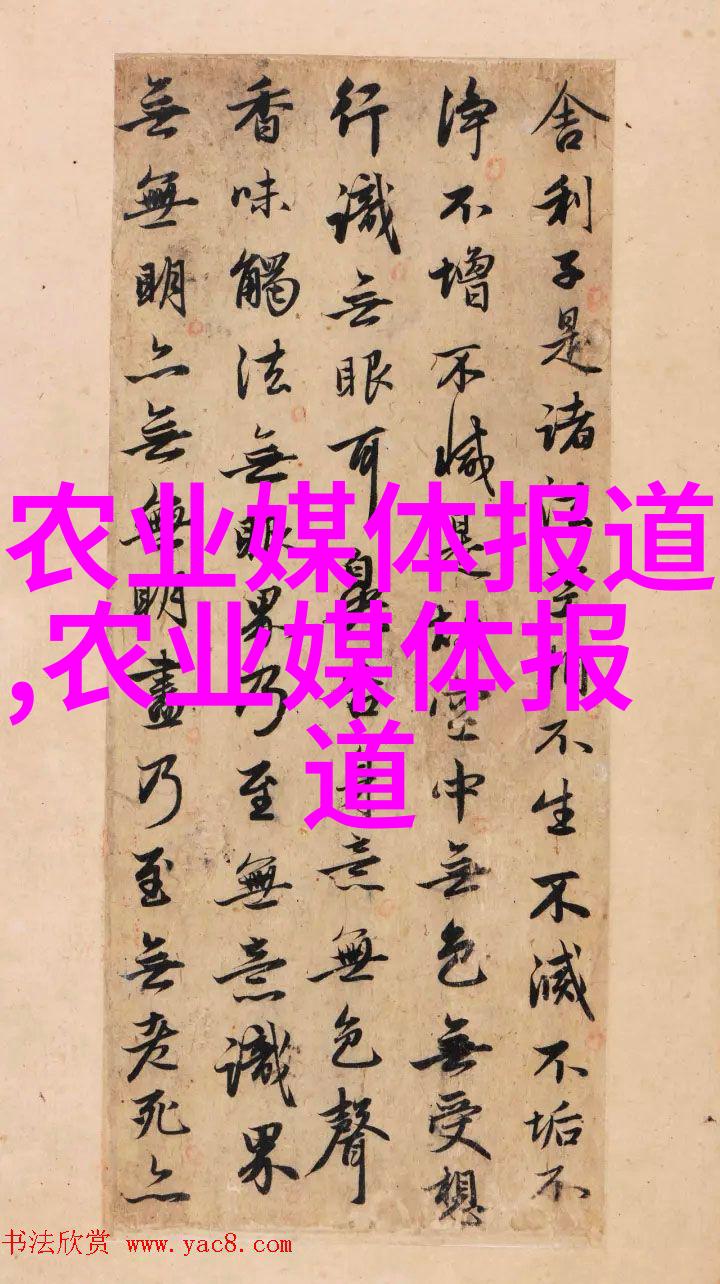 舍利子是諸法空相不生不滅不垢不
淨不增不減是故空中無色無受想
行識無眼耳鼻舌身意無色聲
香味觸法無眼界乃至無意識界
無無明亦無無明盡乃至無老死亦
农业媒体报道
,农业媒体报
道
书法欣赏 www.yac8.com